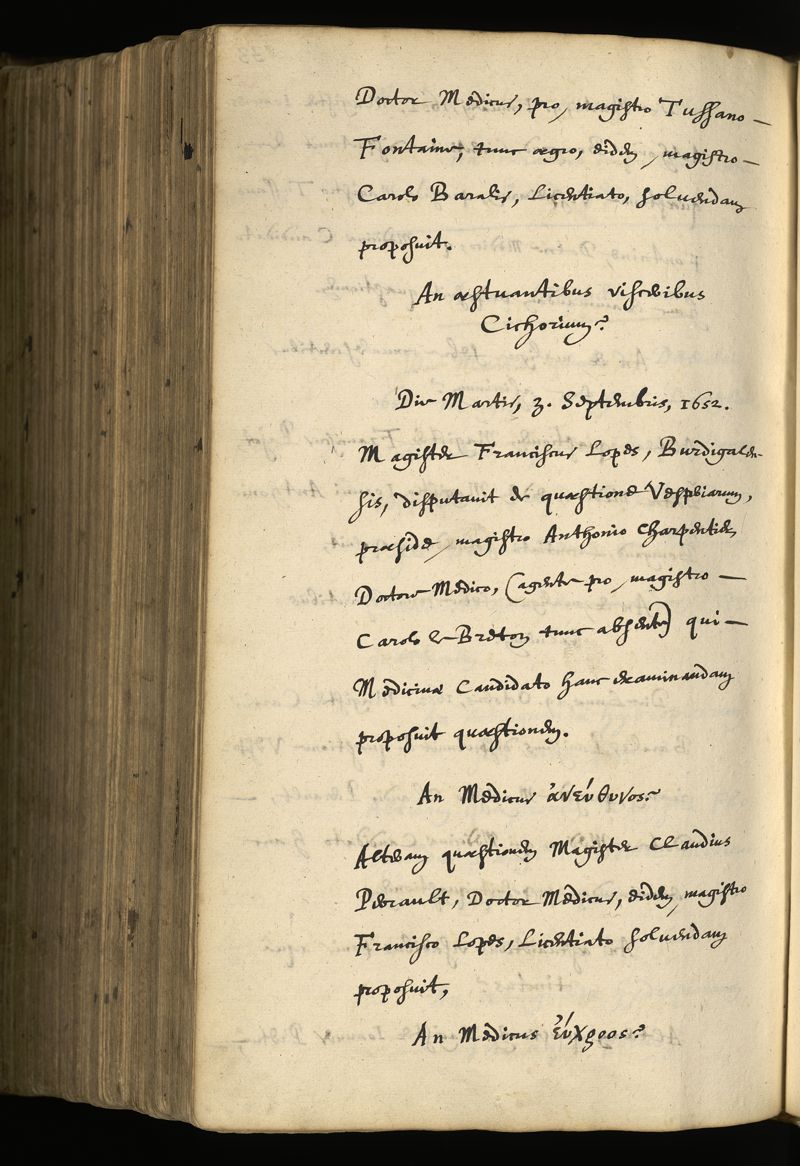 Doctor Medicus, pro, magistro Tussano –
Fontaine, tunc ægro, eidem, magistro –
Carolo Baralis, Licentiato, solvendam
proposuit.
An æstuantibus visceribus
Cichorium?
Die Martis, 3. Septembris, 1652.
Magister Franciscus Lopes, Burdigalen-
sis, disputauit de quæstione Vesperiarum,
præside, magistro Anthonio Charpentier
Doctore Medico, (agente pro, magistro –
Carolo le Breton tunc absente) qui –
Medicinæ Candidato hanc examinandam
proposuit quæstionem.
An Medicus ἀνεύθυνος?
Alteram quæstionem Magister Claudius
Perault, Doctor Medicus, eidem, magistro
Francisco Lopes, Licentiato soluendam
proposuit,
An Medicus εύχροος?